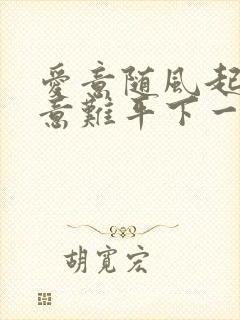 愛意随風起
意難平下一
胡寬宏